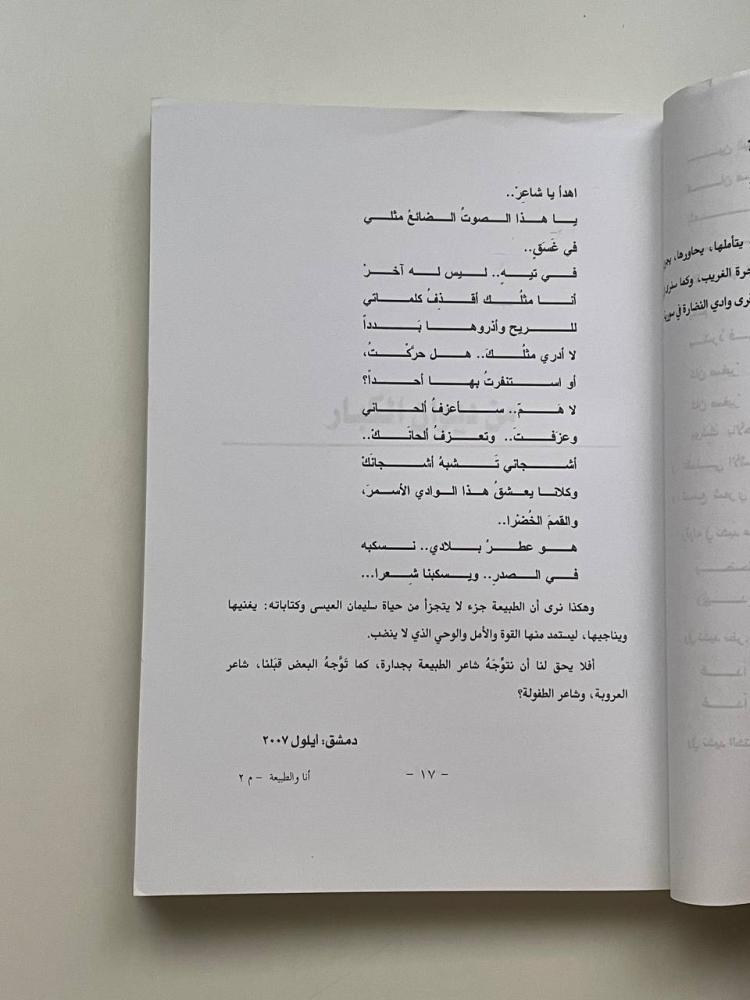 اهدأ يا شاعِرْ..
يا هذا الصوتُ الضائعُ مثلي
في غَسَقٍ..
في تيهٍ.. ليس له آخرْ
أنا مثلُك أقذِفُ كلماتي
للريح وأذروها بَدداً
لا أدري مثلُكَ.. هل حرَّكْتُ،
أو استنفرتُ بها أحداً؟
لا هَمّ.. سأعزفُ ألحاني
وعزفت.. وتعزفُ ألحانَكْ..
أشجاني تَشبهُ أشجانَكْ
وكلانا يعشقُ هذا الوادي الأسمرَ،
والقممَ الخُضْرا..
هو عطرُ بلادي.. نسكبه
في الصدرِ.. ويسكبنا شِعرا...
وهكذا نرى أن الطبيعة جزء لا يتجزأ من حياة سليمان العيسى وكتاباته: يغنيها
ويناجيها، ليستمد منها القوة والأمل والوحي الذي لا ينضب.
أفلا يحق لنا أن نتوِّجَهُ شاعر الطبيعة بجدارة، كما تَوَّجهُ البعض قبَلنا، شاعر
العروبة، وشاعر الطفولة؟
دمشق: ايلول ٢٠٠٧
- ١٧ -
أنا والطبيعة - م ٢
يتأملها، يحاورها،
الغريب، وكما
وادي النضارة في